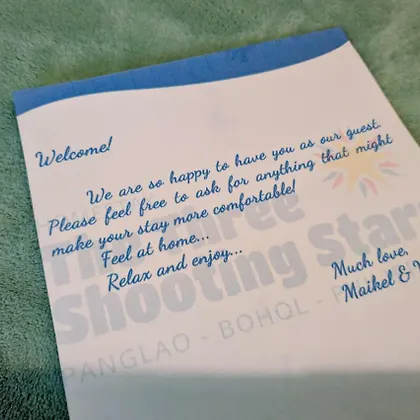 Welcome!
We are so happy to have you as our guest.
Please feel free to ask for anything that might
make your stay more comfortable!
Feel at home...
Relax and enjoy...
Much love,
Maikel &
Three
Shooting Star
PANGLAO - BOHOL -